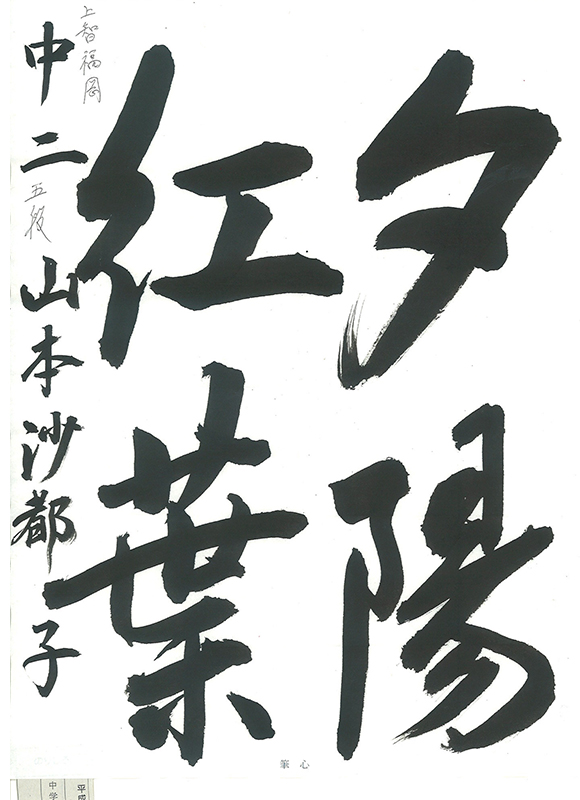 夕陽
紅葉
上智福岡
中二 五段 山本沙都子
心筆
平成
中学